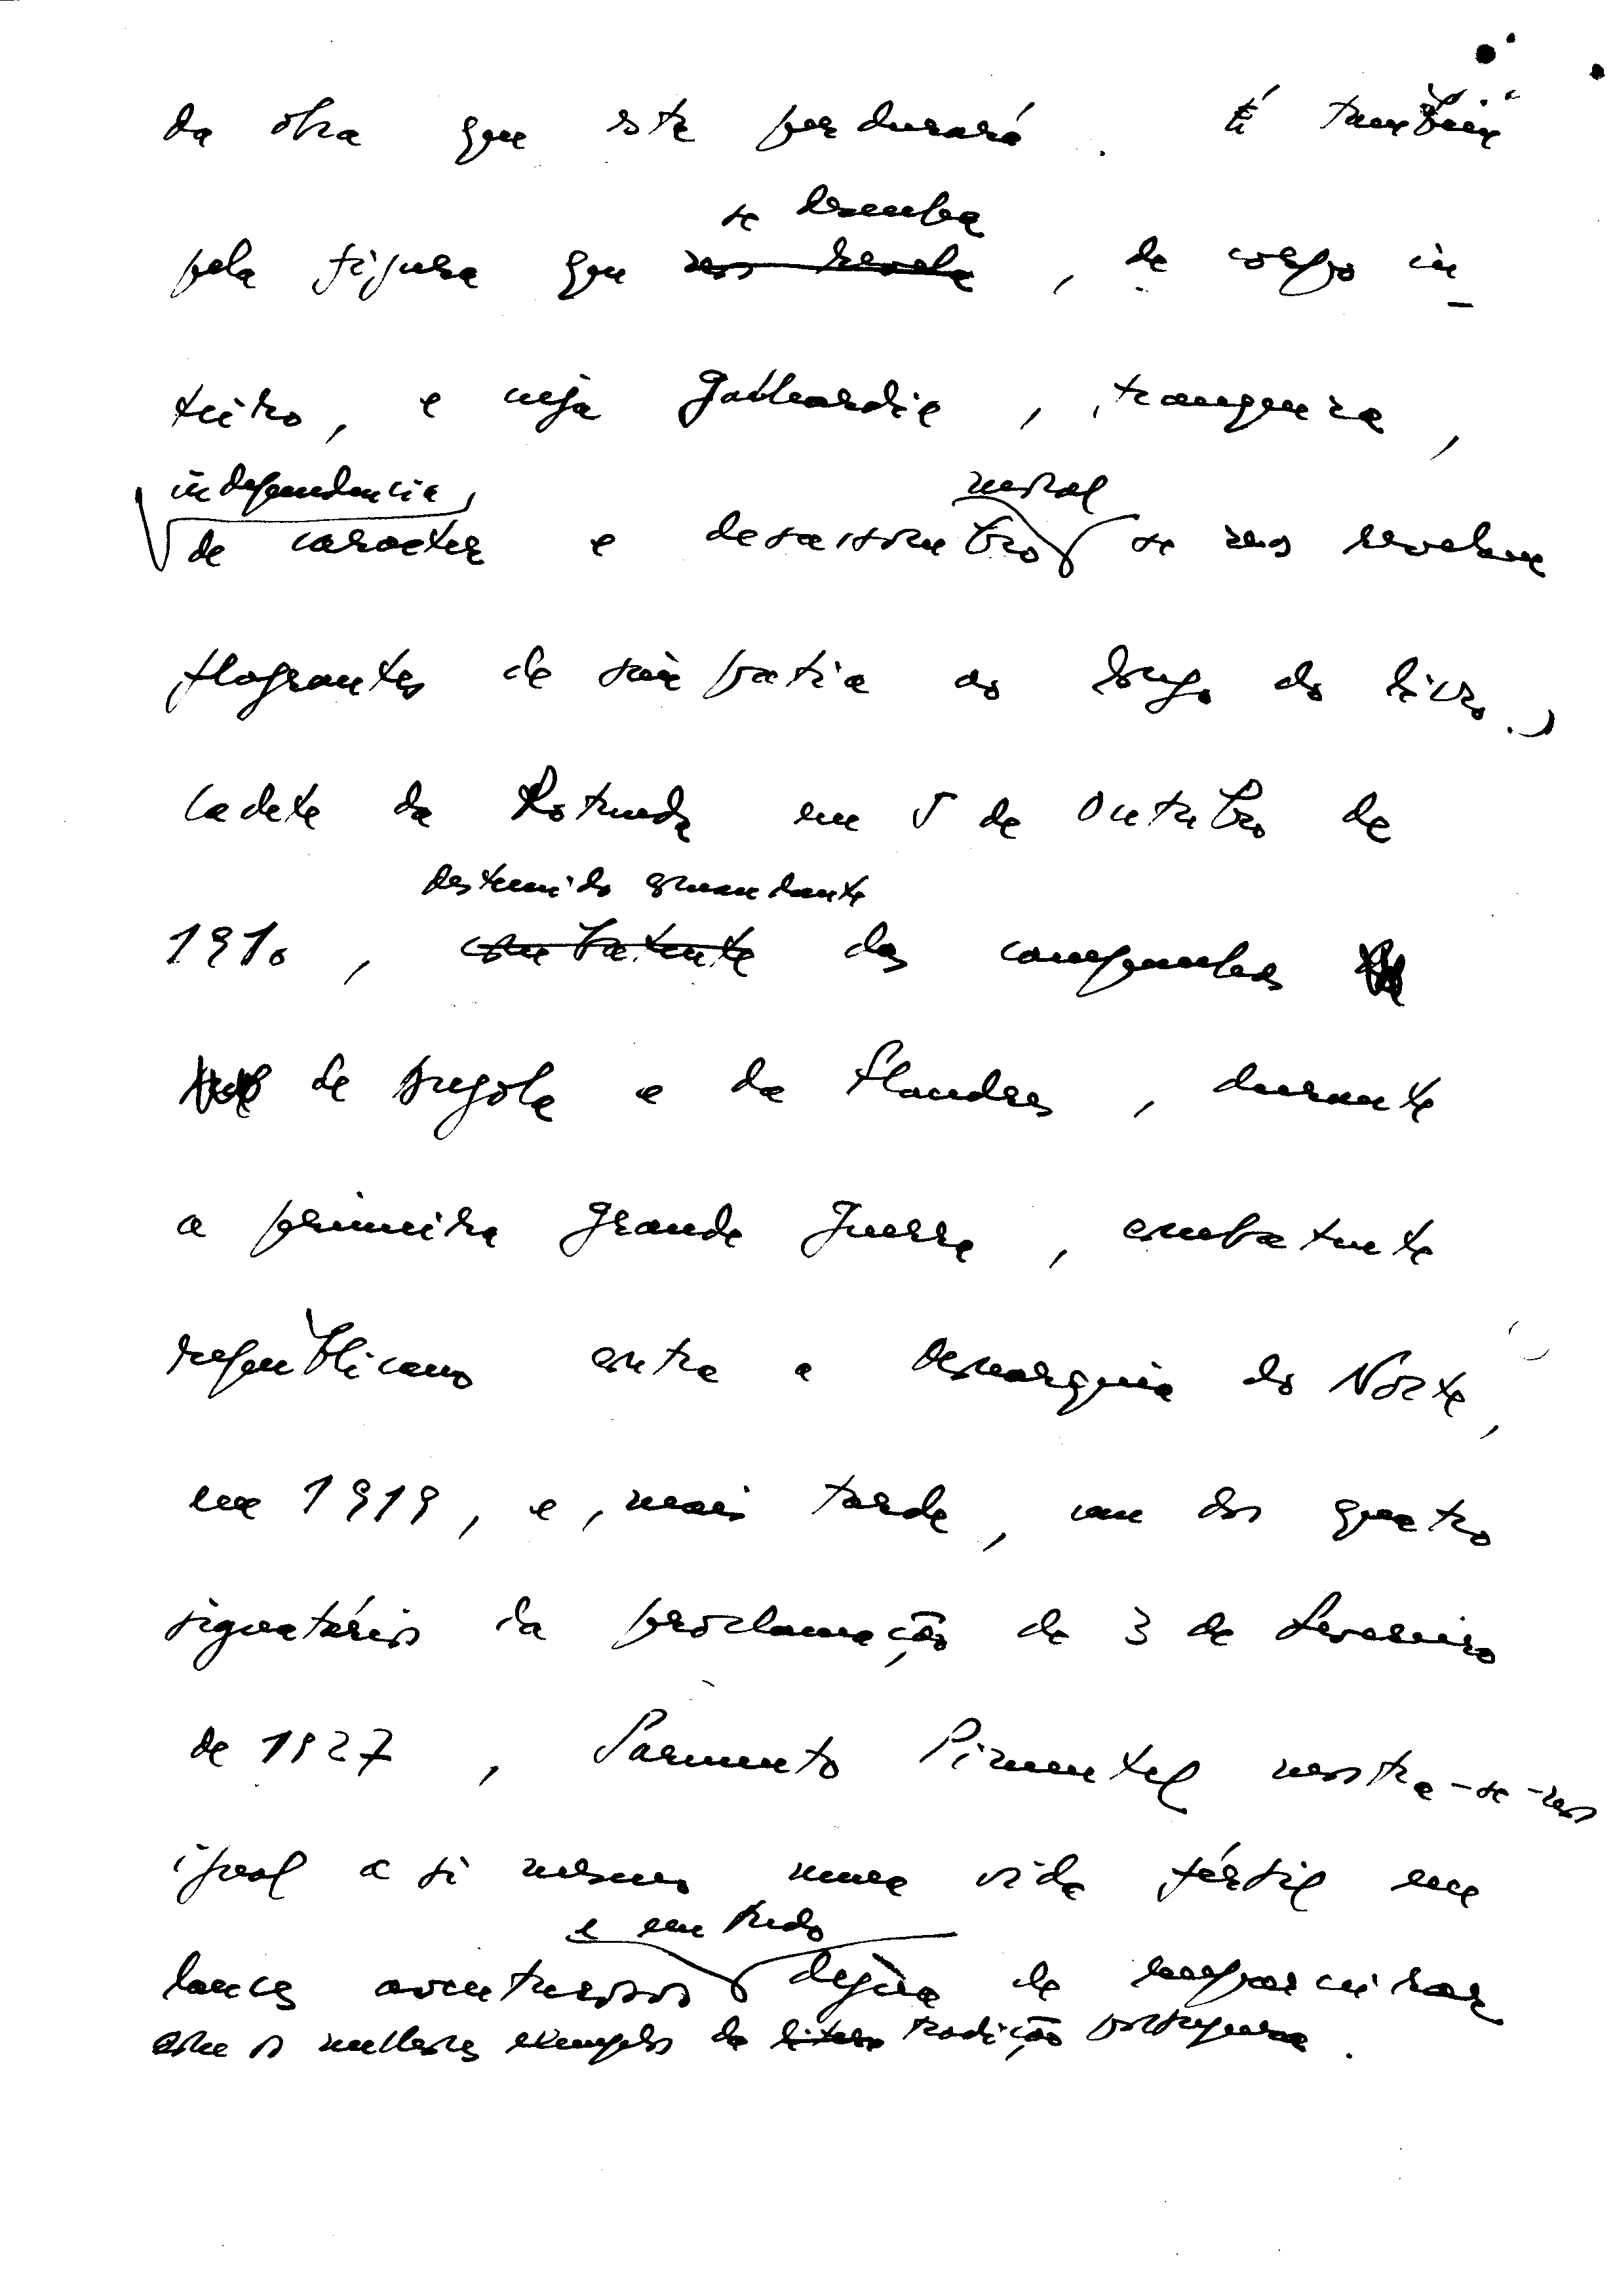 da obra que esta perdurará. É também
se desenha
pela figura que nos revela, de corpo in-
teiro, e cuja galhardia, franqueza,
independencia moral
de caracter e desassombro se nos revelam
flagrantes de simpatia ao longo do livro.
Cadete da Rotunda em 5 de Outubro de
destemido comandante
1910, combatente das campanhas
de Angola e da Flandres, durante
a primeira grande guerra, combatente
republicano contra a Monarquia do Norte,
em 1919, e, mais tarde, um dos quatro
signatários da proclamação de 3 de Fevereiro
de 1927, Sarmento Pimentel mostra-se-nos
igual a si mesmo numa vida fértil em
e em tudo
lances aventurosos digna de emparceirar
com os melhores exemplos da tradição portuguesa.